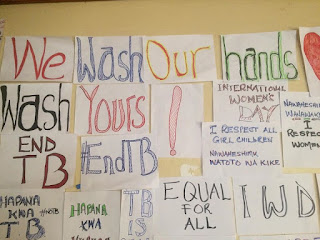 We Wash Our hands
Wash Yours !
END
TB
#EndTB
INTERNATIONAL
WOMEN'S
DAY
I RESPECT ALL
GIRL CHILDREN
NAWAHESHIMU
WATOTO WA KIKE
NAWAHESHIMU
I
RESPECT
HAPANA
KWA
TB
HAPANA
KWA
TB
IS
EQUAL
FOR
ALL
IWD